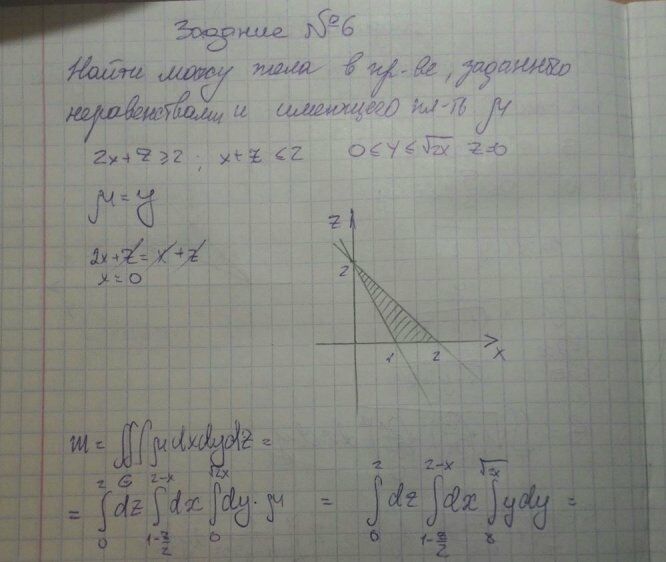 Задание №6
Найти массу тела в пр-ве, заданного
неравенствами и имеющего пл-ть μ
2x+z≥2 ; x+z≤2 0≤y≤√2x z≥0
μ=y
2x+z=x+z
x=0
z
2
1 2 x
m = ∭_G μ dxdydz =
= ∫_0^2 dz ∫_{1-z/2}^{2-x} dx ∫_0^{√2x} dy·μ = ∫_0^2 dz ∫_{1-z/2}^{2-x} dx ∫_0^{√2x} y dy =